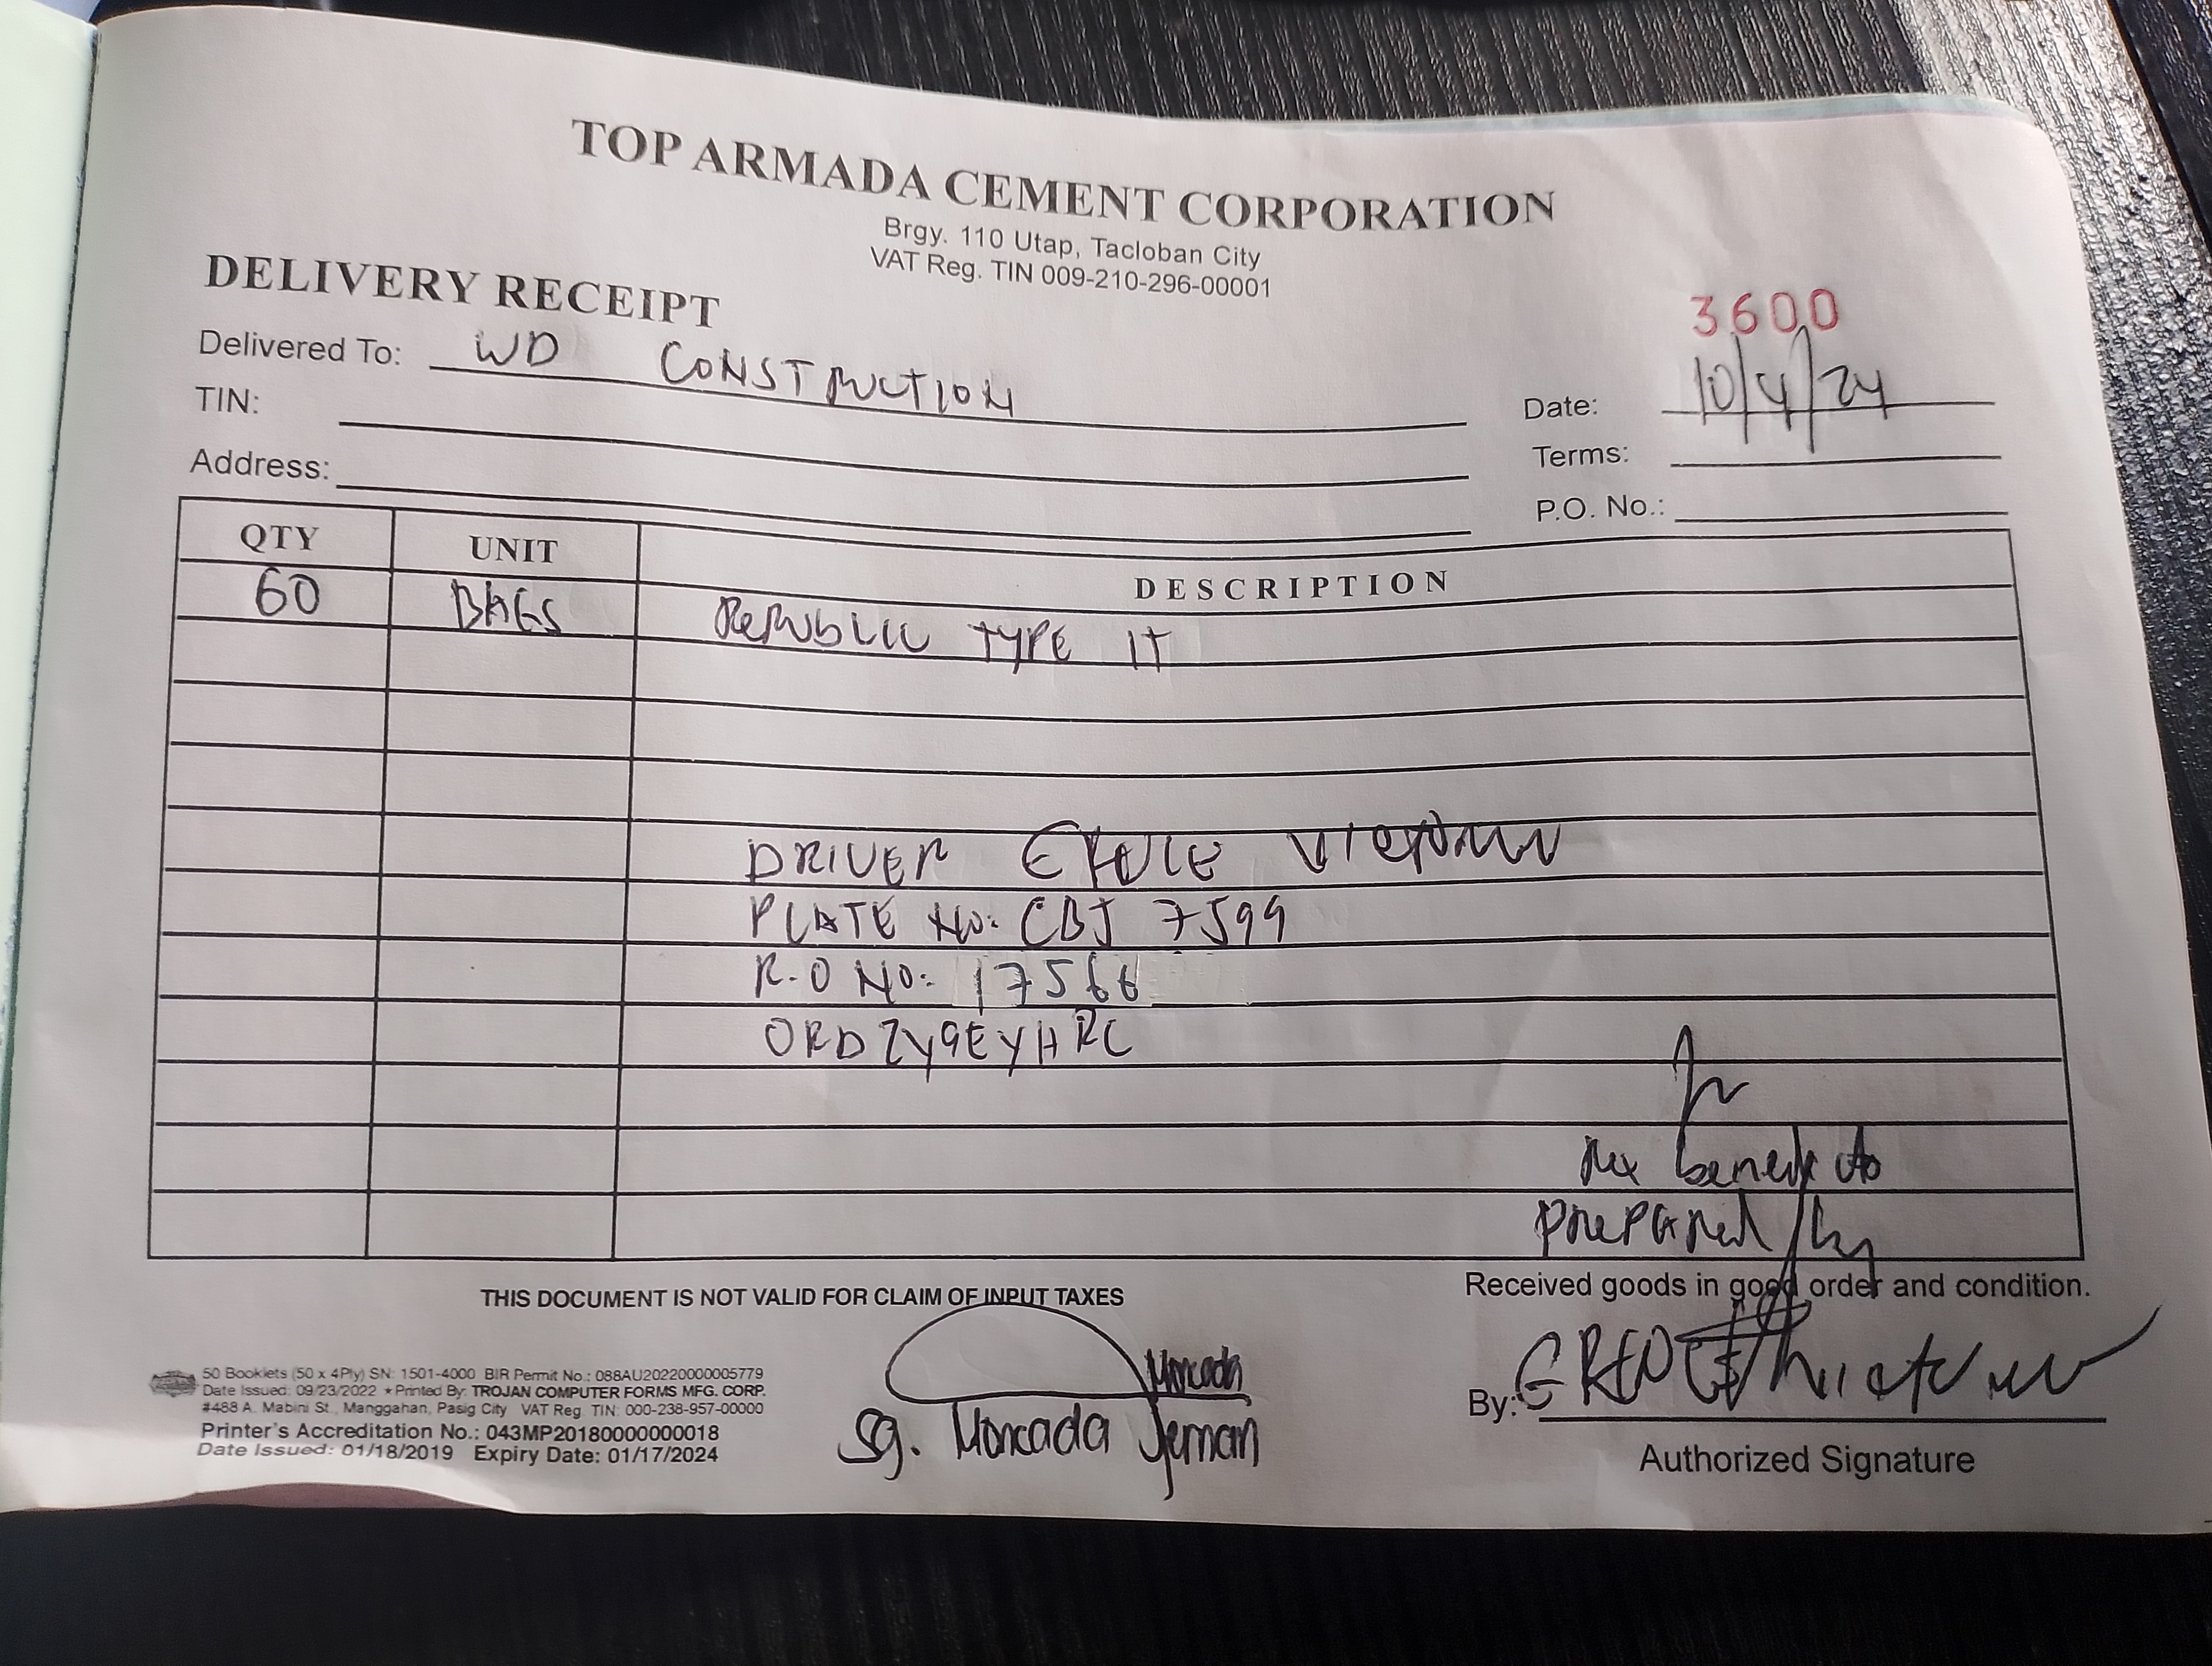 TOP ARMADA CEMENT CORPORATION
Brgy. 110 Utap, Tacloban City
VAT Reg. TIN 009-210-296-00001
DELIVERY RECEIPT
3600
Delivered To: WD CONSTRUCTION
Date: 10/4/24
TIN:
Terms:
Address:
P.O. No.:
QTY UNIT DESCRIPTION
60 BAGS REPUBLIC TYPE 1T
DRIVER
PLATE NO: CBJ 7599
R.O NO: 17566
ORDZY9EYHRC
prepared by
THIS DOCUMENT IS NOT VALID FOR CLAIM OF INPUT TAXES
Received goods in good order and condition.
50 Booklets (50 x 4Ply) SN: 1501-4000 BIR Permit No.: 088AU20220000005779
Date Issued: 09/23/2022 ★ Printed By: TROJAN COMPUTER FORMS MFG. CORP.
#488 A. Mabini St., Manggahan, Pasig City VAT Reg. TIN: 000-238-957-00000
Printer's Accreditation No.: 043MP20180000000018
Date Issued: 01/18/2019 Expiry Date: 01/17/2024
Moncada
Sg. Moncada Jeman
By:
Authorized Signature